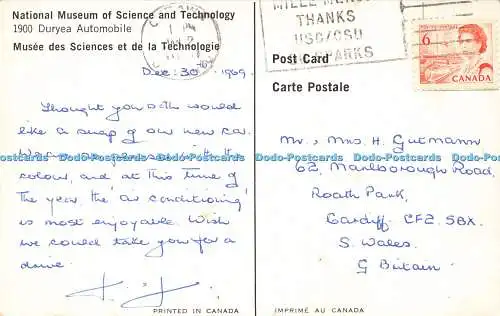 National Museum of Science and Technology
1900 Duryea Automobile
Musée des Sciences et de la Technologie
Dec: 30th 1969.
Thought you both would
like a snap of our new car.
We are so pleased with the
colour, and at this time of
the year, the 'air conditioning'
is most enjoyable. Wish
we could take you for a
drive.
PRINTED IN CANADA
THANKS
USC/CSU
Post Card
Carte Postale
6
CANADA
Mr & Mrs H. Gutmann
62, Marlborough Road,
Roath Park,
Cardiff CF2 5BX.
S. Wales.
G Britain
IMPRIMÉ AU CANADA
Dodo-Postcards Dodo-Postcards Dodo-Postcards Dodo-Postcards Dodo-Postcards